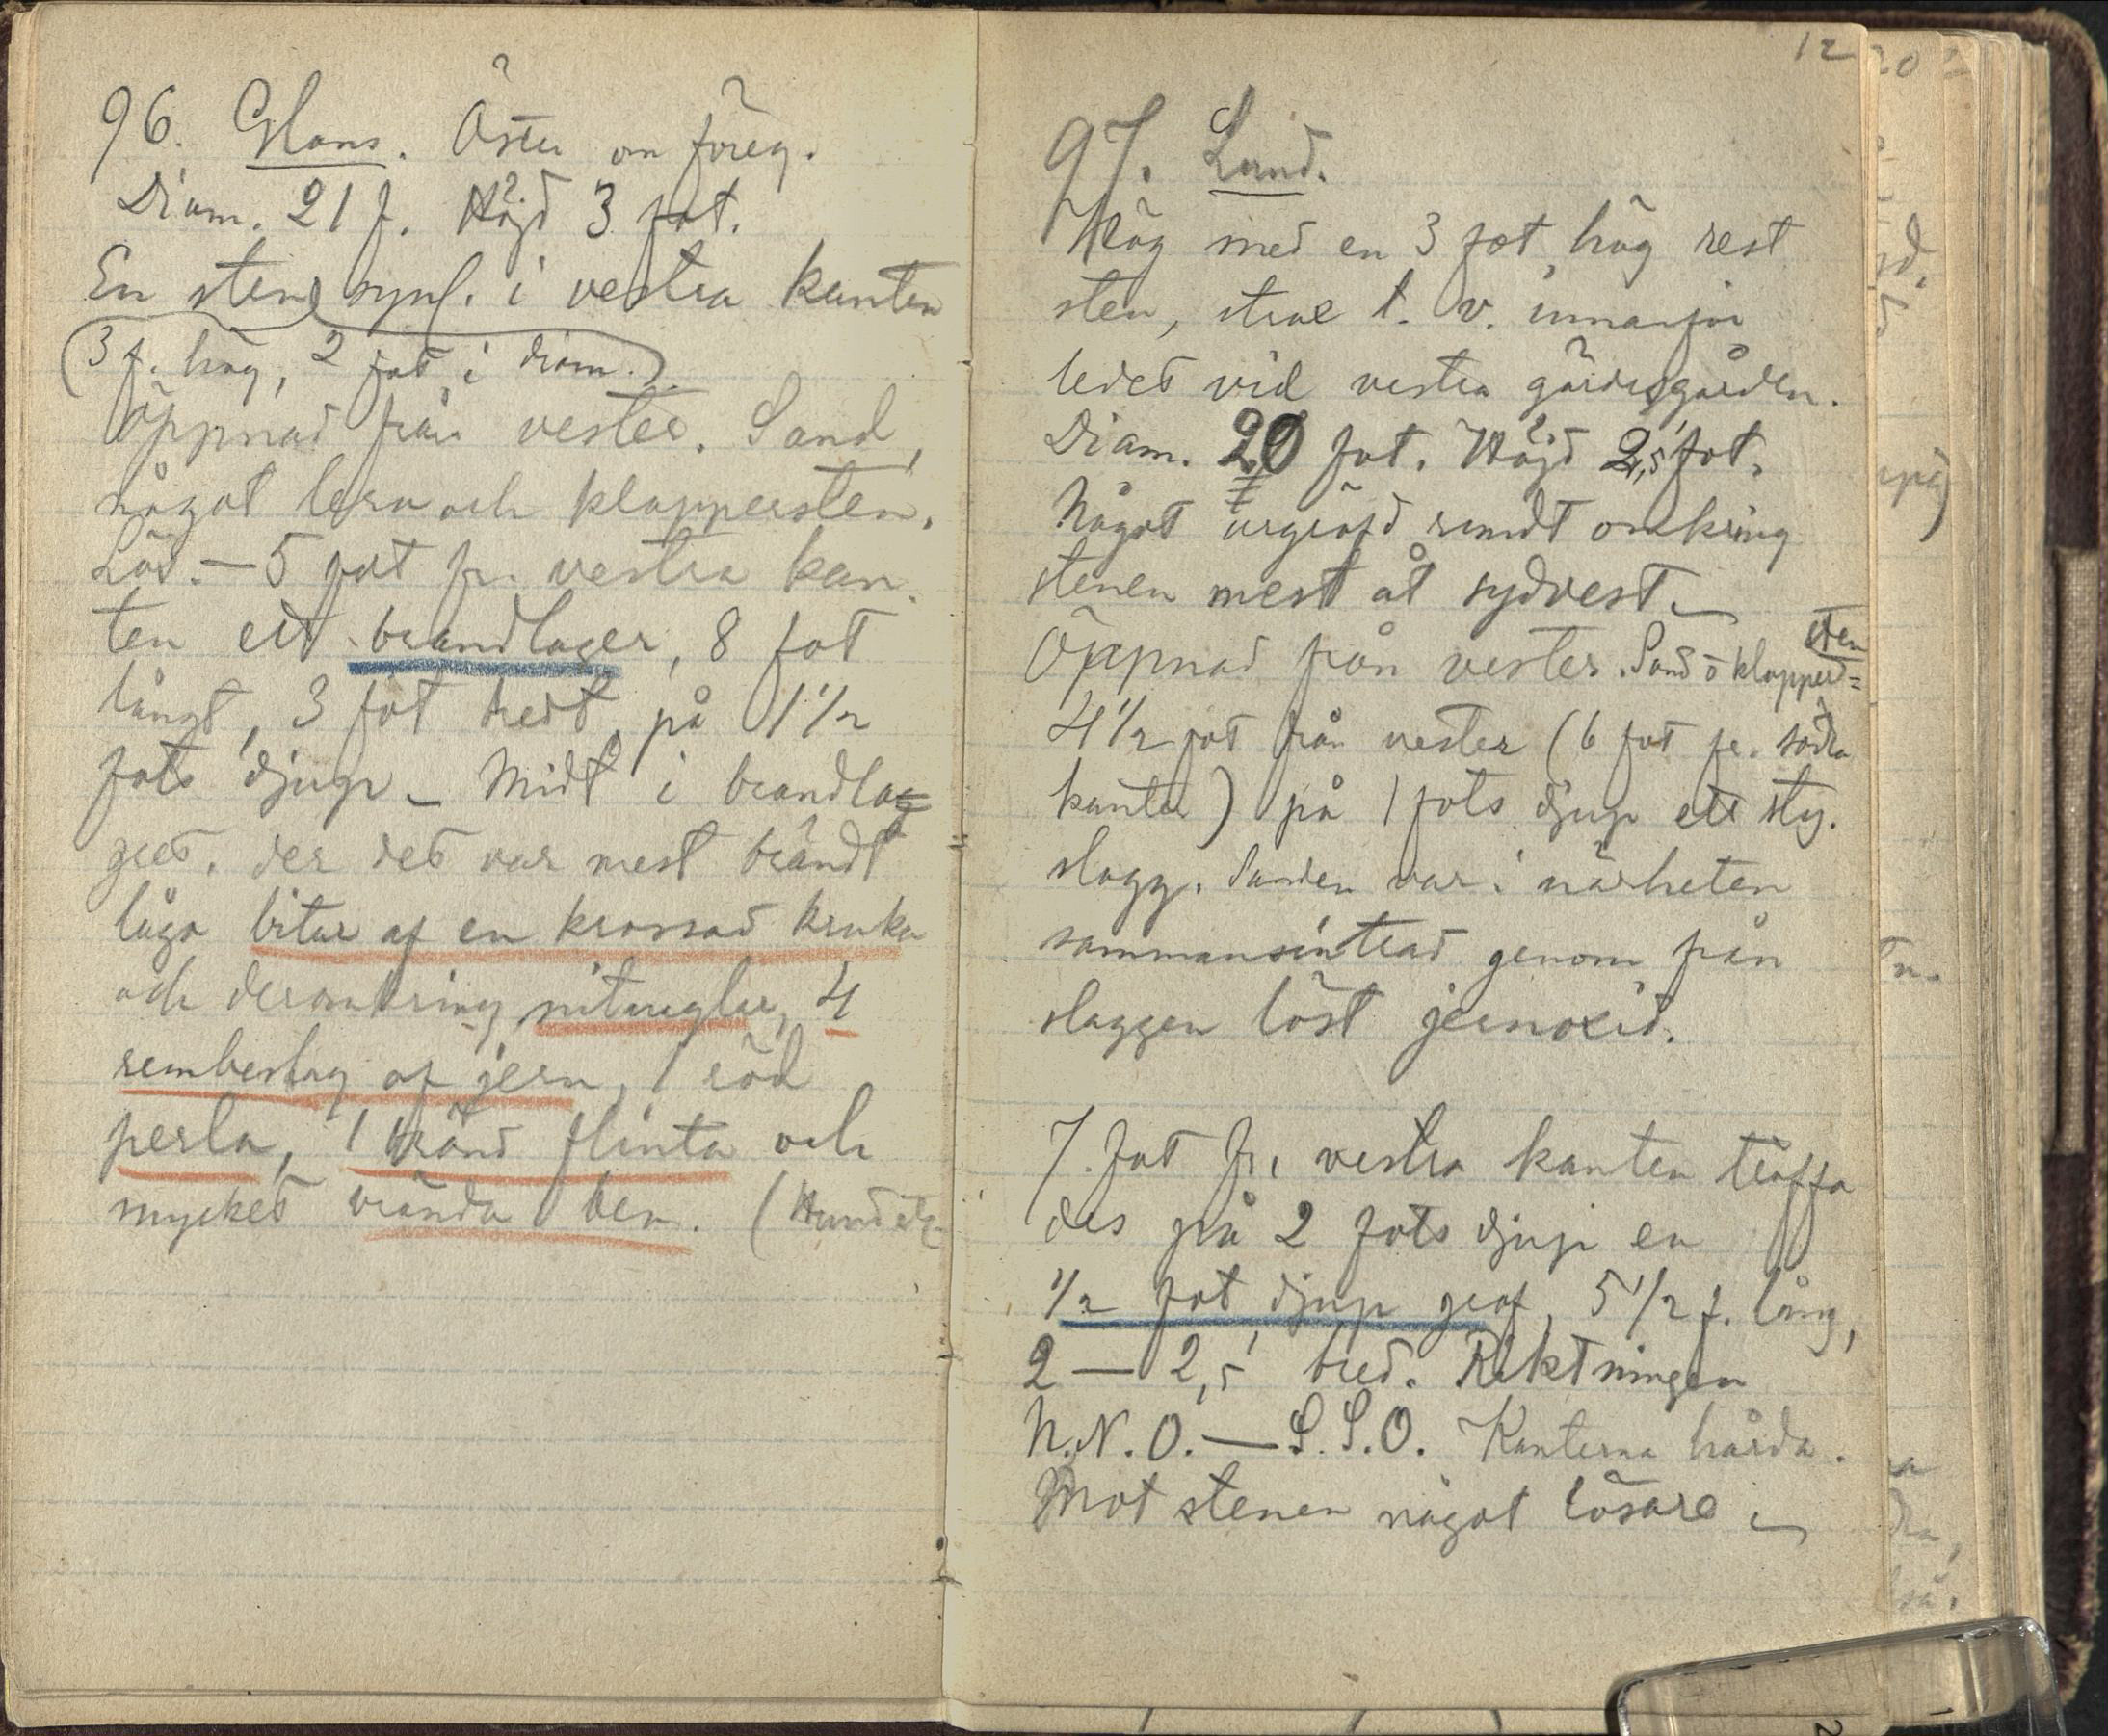 96. Glans. Öster om föreg.
Diam. 21 f. Höjd 3 fot.
En sten synl. i vestra kanten
(3 f. hög, 2 fot i diam.)
Öppnad från vester. Sand,
något lera och klappersten.
Lös. — 5 fot fr. vestra kan-
ten ett brandlager, 8 fot
långt, 3 fot bredt, på 1 1/2
fots djup – Midt i brandla=
gret, der det var mest brändt
lågo bitar af en krossad kruka
och deromkring nitnaglar, 4
rembeslag af jern, 1 röd
perla, 1 bränd flinta och
mycket brända ben. (Hund etc
12
97. Lund.
Hög med en 3 fot hög rest
sten, strax t. v. innanför
ledet vid vestra gärdesgården.
Diam. 20 fot. Höjd 2,5 fot.
Något urgräfd rundt omkring
stenen mest åt sydvest –
Öppnad från vester. Sand o klapper=
sten
4 1/2 fot från vester (6 fot fr. södra
kanten) på 1 fots djup ett sty.
slagg. Sanden var i närheten
sammansintrad genom från
slaggen löst jernoxid.
7 fot fr. vestra kanten träffa
des på 2 fots djup en
1/2 fot djup graf, 5 1/2 f. lång,
2 — 2,5 bred. Riktningen
N.N.O. — S.S.O. Kanterna hårda.
Mot stenen något lösare –